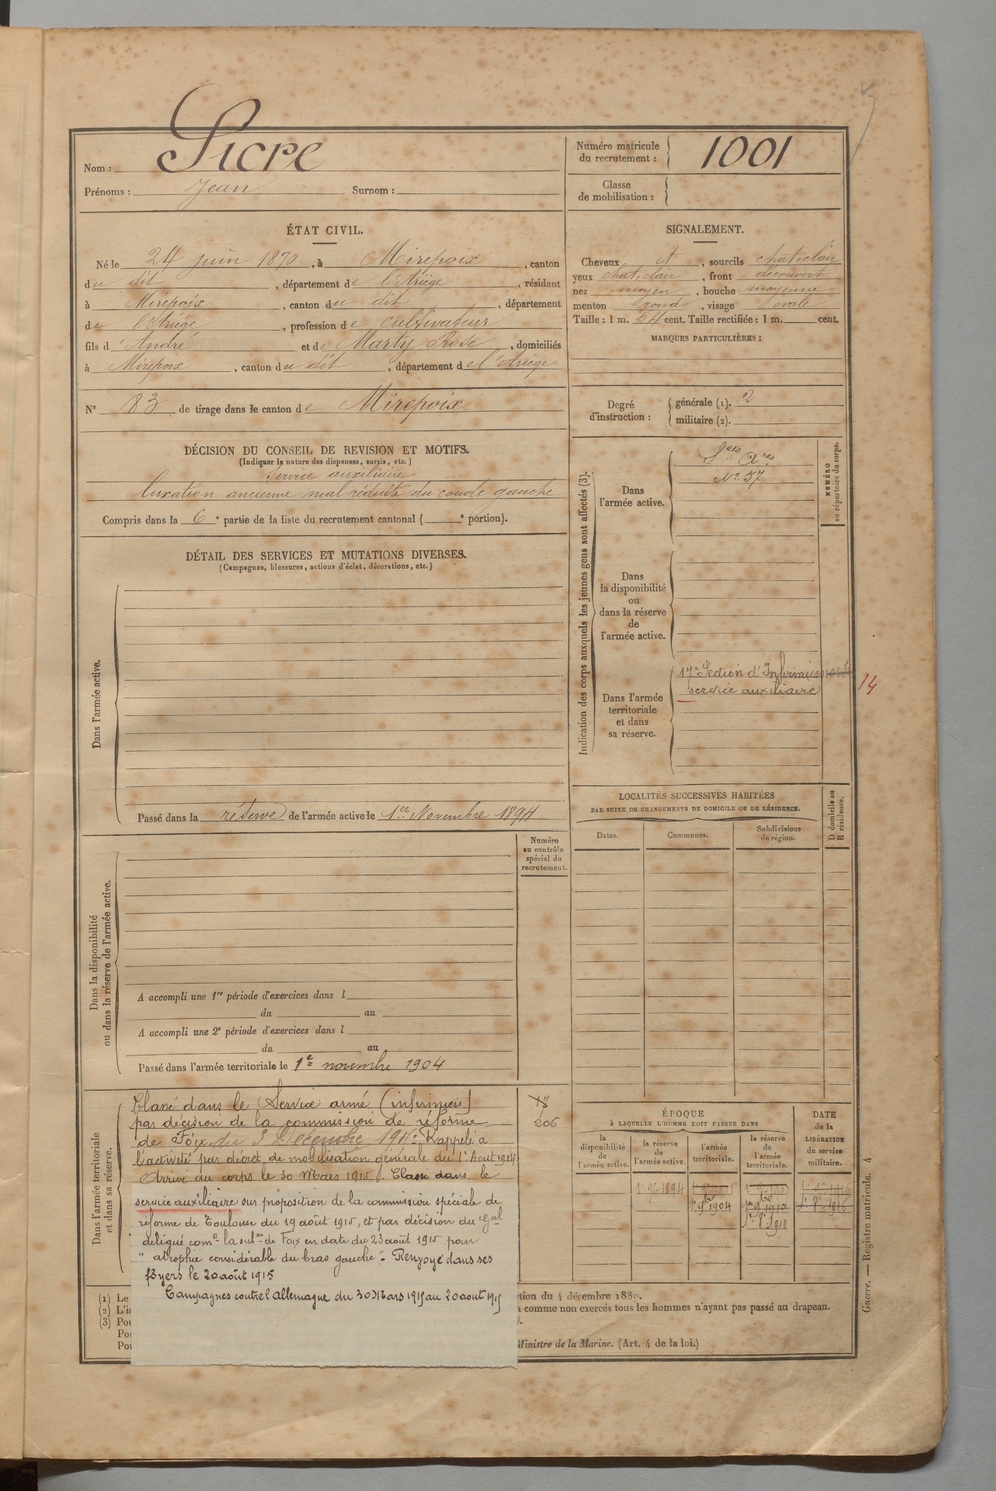 Nom : Sicre
Prénoms : Jean Surnom :
Numéro matricule du recrutement : 1001
Classe de mobilisation :
ÉTAT CIVIL.
Né le 24 juin 1870, à Mirepoix, canton
du dit, département de l'Ariège, résidant
à Mirepoix, canton du dit, département
de l'Ariège, profession de cultivateur
fils d'André et de Marty Rose, domiciliés
à Mirepoix, canton du dit, département de l'Ariège
N° 83 de tirage dans le canton de Mirepoix
SIGNALEMENT.
Cheveux et, sourcils chat. clair
yeux chat. clair, front découvert
nez moyen, bouche moyenne
menton rond, visage ovale
Taille : 1 m. 64 cent. Taille rectifiée : 1 m. cent.
MARQUES PARTICULIÈRES :
Degré d'instruction : générale (1). 2
militaire (2).
DÉCISION DU CONSEIL DE REVISION ET MOTIFS.
(Indiquer la nature des dispenses, sursis, etc.)
Service auxiliaire
luxation ancienne mal réduite du coude gauche
Compris dans la 6e partie de la liste du recrutement cantonal ( e portion).
DÉTAIL DES SERVICES ET MUTATIONS DIVERSES.
(Campagnes, blessures, actions d'éclat, décorations, etc.)
Dans l'armée active.
Passé dans la réserve de l'armée active le 1er Novembre 1894
Indication des corps auxquels les jeunes gens sont affectés (3).
NUMÉRO au répertoire du corps.
Dans l'armée active.
N° 57
Dans la disponibilité ou dans la réserve de l'armée active.
Dans l'armée territoriale et dans sa réserve.
17e Section d'Infirmiers
service auxiliaire
14
LOCALITÉS SUCCESSIVES HABITÉES
PAR SUITE DE CHANGEMENTS DE DOMICILE OU DE RÉSIDENCE.
Dates. Communes. Subdivisions de région. D domicile ou R résidence.
Numéro au contrôle spécial du recrutement.
Dans la disponibilité ou dans la réserve de l'armée active.
A accompli une 1re période d'exercices dans l
du au
A accompli une 2e période d'exercices dans l
du au
Passé dans l'armée territoriale le 1er novembre 1904
Dans l'armée territoriale et dans sa réserve.
206
Classé dans le Service armé (infirmiers)
par décision de la commission de réforme
de Foix du 3 Décembre 1914. Rappelé à
l'activité par décret de mobilisation générale du 1er Aout 1914
Arrivé au corps le 30 Mars 1915. Classé dans le
service auxiliaire sur proposition de la commission spéciale de
réforme de Toulouse du 19 août 1915, et par décision du Gal
délégué comt la subon de Foix en date du 23 août 1915 pour
" atrophie considérable du bras gauche ". Renvoyé dans ses
foyers le 20 août 1915
Campagnes contre l'allemagne du 30 Mars 1915 au 20 aout 1915
ÉPOQUE
À LAQUELLE L'HOMME DOIT PASSER DANS
la disponibilité de l'armée active. la réserve de l'armée active. l'armée territoriale. la réserve de l'armée territoriale.
DATE de la LIBÉRATION du service militaire.
1er 9bre 1894
1er 9bre 1904
1er 9bre 1910
(1) Le
(2) L'i
(3) Pou
Pou
Pou
tion du 4 décembre 1889.
comme non exercés tous les hommes n'ayant pas passé au drapeau.
Ministre de la Marine. (Art. 4 de la loi.)
Guerre. — Registre matricule. 4